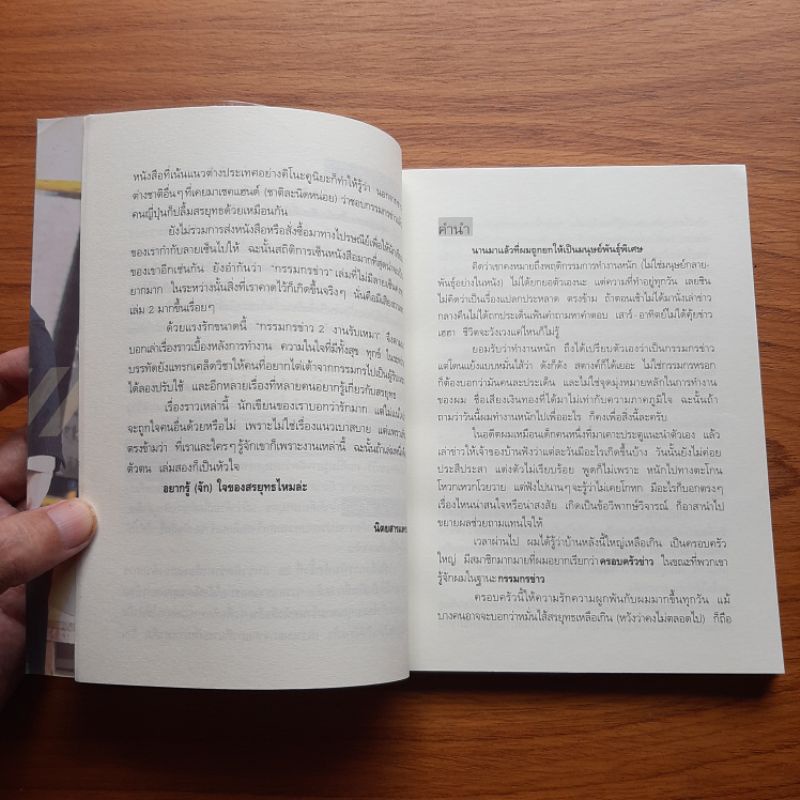 หนังสือที่เน้นแนวต่างประเทศอย่างคิโนะคูนิยะก็ทำให้รู้ว่า
ต่างชาติอื่นๆ ที่เคยมาเซคแฮนด์ (ชาติละนิดหน่อย) ว่าชอบกรรมกรข่าว
คนญี่ปุ่นก็ปลื้มสรยุทธด้วยเหมือนกัน
ยังไม่รวมการส่งหนังสือหรือสั่งซื้อมาทางไปรษณีย์เพื่อให้
ของเรากำกับลายเซ็นไปให้ ฉะนั้นสถิติการเซ็นหนังสือมากที่สุด
ของเขาอีกเช่นกัน ยังอำกันว่า "กรรมกรข่าว" เล่มที่ไม่มีลายเซ็น
ยากมาก ในระหว่างนั้นสิ่งที่เราคาดไว้ก็เกิดขึ้นจริงๆ นั่นคือมีเสียง
เล่ม 2 มากขึ้นเรื่อยๆ
ด้วยแรงรักขนาดนี้ "กรรมกรข่าว 2 งานรับเหมา" จึง
บอกเล่าเรื่องราวเบื้องหลังการทำงาน ความในใจที่มีทั้งสุข ทุกข์
บรรทัดยังแทรกเคล็ดวิชาให้คนที่อยากไต่เต้าจากกรรมกรไปเป็น
ได้ลองปรับใช้ และอีกหลายเรื่องที่หลายคนอยากรู้เกี่ยวกับสรยุทธ
เรื่องราวเหล่านี้ นักเขียนของเราบอกว่ารักมาก แต่ไม่
จะถูกใจคนอื่นด้วยหรือไม่ เพราะไม่ใช่เรื่องแนวเบาสบาย แต่เพราะ
ตรงข้ามว่า ที่เราและใครๆ รู้จักเขาก็เพราะงานเหล่านี้ ฉะนั้นถ้าเล่ม
ตัวตน เล่มสองก็เป็นหัวใจ
อยากรู้ (จัก) ใจของสรยุทธไหมล่ะ
คำนำ
นานมาแล้วที่ผมถูกยกให้เป็นมนุษย์พันธุ์พิเศษ
คิดว่าเขาคงหมายถึงพฤติกรรมการทำงานหนัก (ไม่ใช่มนุษย์กลาย-
พันธุ์อย่างในหนัง) ไม่ได้ยกยอตัวเองนะ แต่ความที่ทำอยู่ทุกวัน เลยชิน
ไม่คิดว่าเป็นเรื่องแปลกประหลาด ตรงข้าม ถ้าตอนเช้าไม่ได้มานั่งเล่าข่าว
กลางคืนไม่ได้ถกประเด็นฟันคำถามหาคำตอบ เสาร์-อาทิตย์ไม่ได้คุ้ยข่าว
เฮฮา ชีวิตจะวังเวงแค่ไหนก็ไม่รู้
ยอมรับว่าทำงานหนัก ถึงได้เปรียบตัวเองว่าเป็นกรรมกรข่าว
แต่โดนแย้งแบบหมั่นไส้ว่า ดังก็ดัง สตางค์ก็ได้เยอะ ไม่ใช่กรรมกรหรอก
ก็ต้องบอกว่ามันคนละประเด็น และไม่ใช่จุดมุ่งหมายหลักในการทำงาน
ของผม ชื่อเสียงเงินทองที่ได้มาไม่เท่ากับความภาคภูมิใจ ฉะนั้นถ้า
ถามว่าวันนี้ผมทำงานหนักไปเพื่ออะไร ก็คงเพื่อสิ่งนี้ละครับ
ในอดีตผมเหมือนเด็กคนหนึ่งที่มาเคาะประตูแนะนำตัวเอง แล้ว
เล่าข่าวให้เจ้าของบ้านฟังว่าแต่ละวันมีอะไรเกิดขึ้นบ้าง วันนั้นยังไม่ค่อย
ประสีประสา แต่งตัวไม่เรียบร้อย พูดก็ไม่เพราะ หนักไปทางตะโกน
โหวกเหวกโวยวาย แต่ฟังไปนานๆ จะรู้ว่าไม่เคยโกหก มีอะไรก็บอกตรงๆ
เรื่องไหนน่าสนใจหรือน่าสงสัย เกิดเป็นข้อวิพากษ์วิจารณ์ ก็อาสานำไป
ขยายผลช่วยถามแทนใจให้
เวลาผ่านไป ผมได้รู้ว่าบ้านหลังนี้ใหญ่เหลือเกิน เป็นครอบครัว
ใหญ่ มีสมาชิกมากมายที่ผมอยากเรียกว่าครอบครัวข่าว ในขณะที่พวกเขา
รู้จักผมในฐานะกรรมกรข่าว
ครอบครัวนี้ให้ความรักความผูกพันกับผมมากขึ้นทุกวัน แม้
บางคนอาจจะบอกว่าหมั่นไส้สรยุทธเหลือเกิน (หวังว่าคงไม่ตลอดไป) ก็ถือ